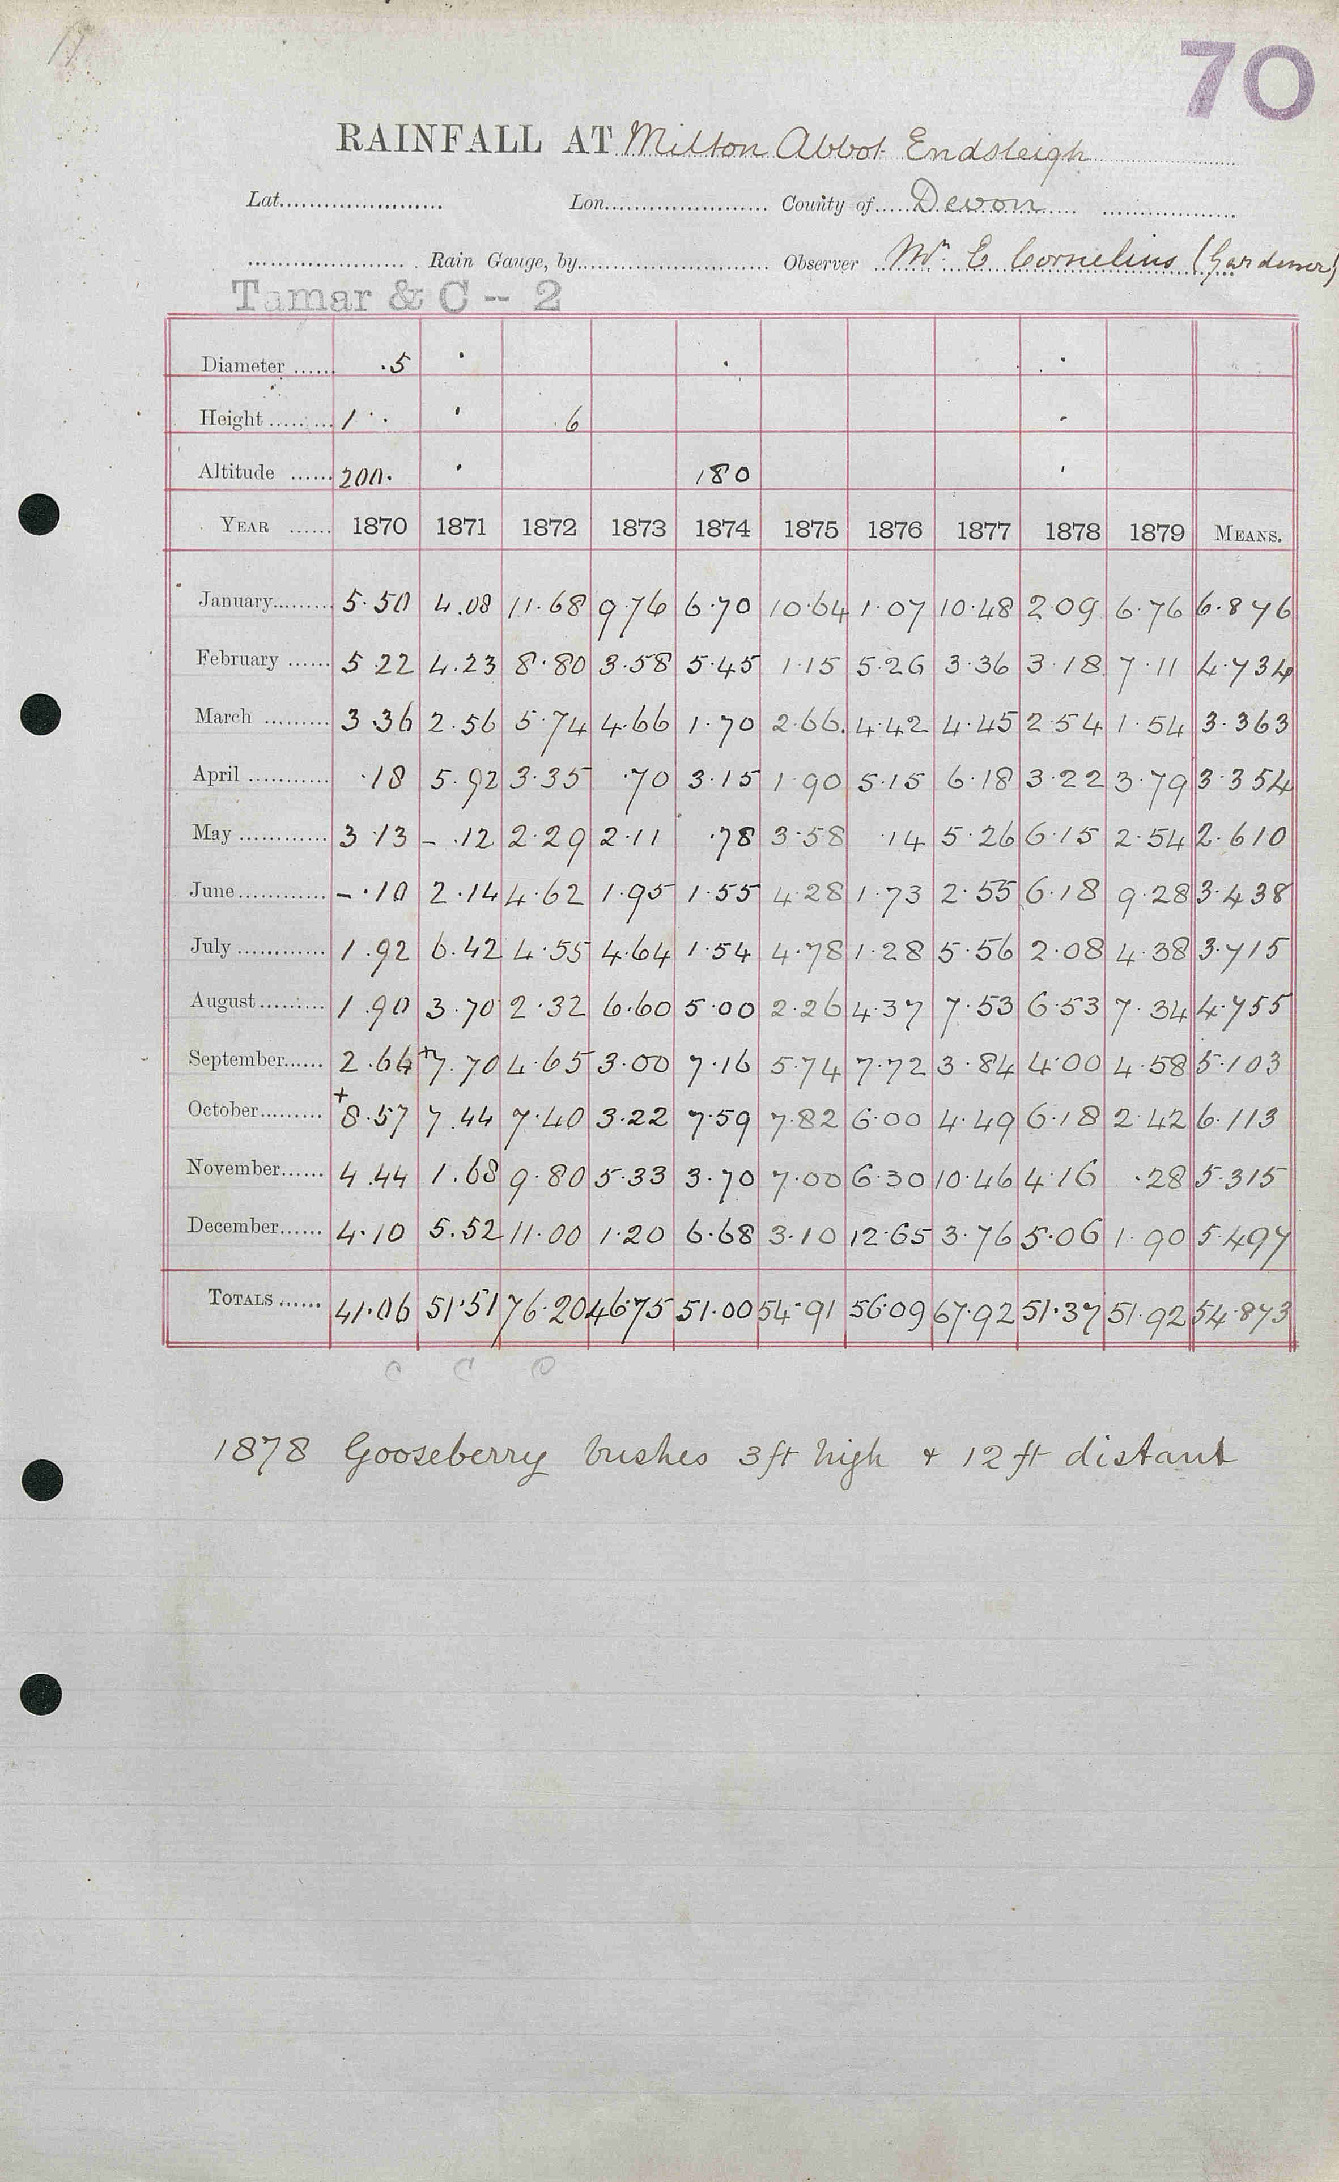 70
RAINFALL AT Milton Abbot Endsleigh
Lat. Lon. County of Devon
Rain Gauge, by Observer Mr E Cornelius (Gardener)
Tamar & C -- 2
Diameter .5
Height 1 6
Altitude 200. 180
YEAR 1870 1871 1872 1873 1874 1875 1876 1877 1878 1879 MEANS.
January 5.50 4.08 11.68 9.76 6.70 10.64 1.07 10.48 2.09 6.76 6.876
February 5.22 4.23 8.80 3.58 5.45 1.15 5.26 3.36 3.18 7.11 4.734
March 3.36 2.56 5.74 4.66 1.70 2.66 4.42 4.45 2.54 1.54 3.363
April .18 5.92 3.35 .70 3.15 1.90 5.15 6.18 3.22 3.79 3.354
May 3.13 - .12 2.29 2.11 .78 3.58 .14 5.26 6.15 2.54 2.610
June - .10 2.14 4.62 1.95 1.55 4.28 1.73 2.55 6.18 9.28 3.438
July 1.92 6.42 4.55 4.64 1.54 4.78 1.28 5.56 2.08 4.38 3.715
August 1.90 3.70 2.32 6.60 5.00 2.26 4.37 7.53 6.53 7.34 4.755
September 2.64 +7.70 4.65 3.00 7.16 5.74 7.72 3.84 4.00 4.58 5.103
October +8.57 7.44 7.40 3.22 7.59 7.82 6.00 4.49 6.18 2.42 6.113
November 4.44 1.68 9.80 5.33 3.70 7.00 6.30 10.46 4.16 .28 5.315
December 4.10 5.52 11.00 1.20 6.68 3.10 12.65 3.76 5.06 1.90 5.497
TOTALS 41.06 51.51 76.20 46.75 51.00 54.91 56.09 67.92 51.37 51.92 54.873
C C C
1878 Gooseberry bushes 3ft high & 12 ft distant